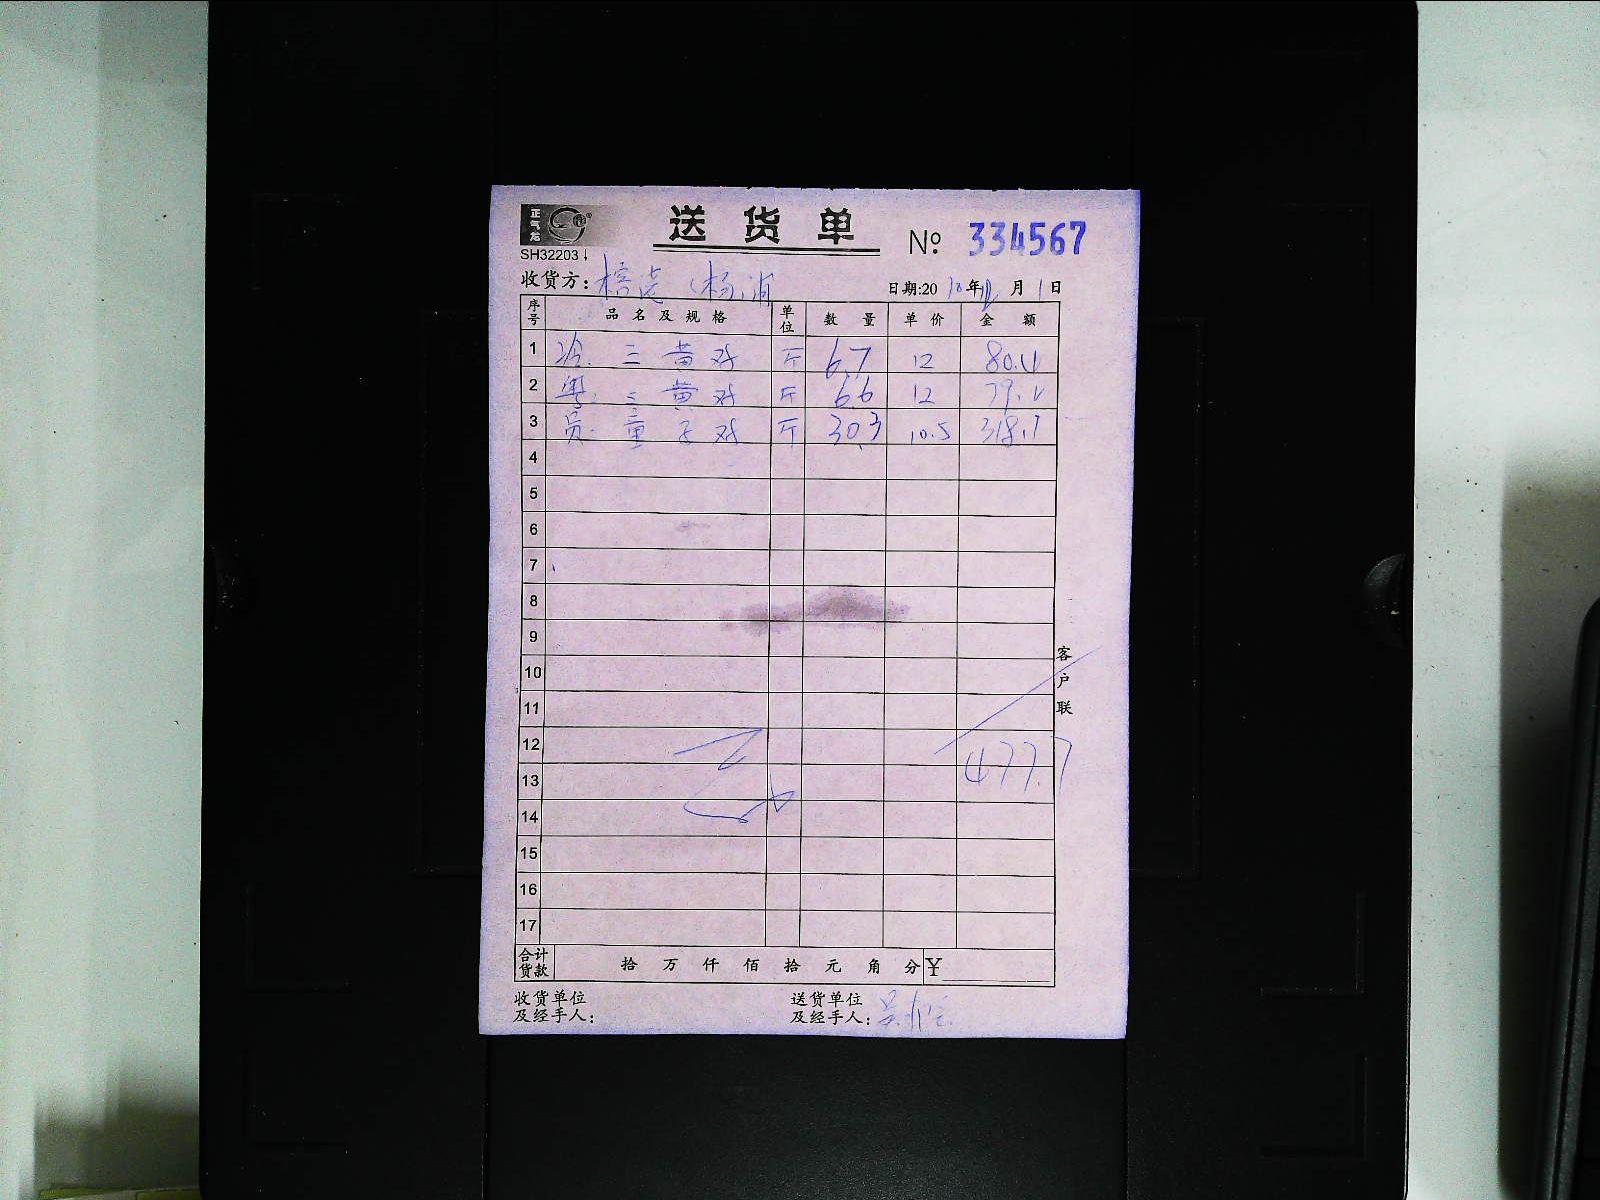 正气龙
送货单
№ 334567
SH32203
收货方: 榕港(杨浦
日期:20 10年12月1日
序号 品名及规格 单位 数量 单价 金额
1 冷.三黄鸡 斤 6.7 12 80.4
2 粤.三黄鸡 斤 6.6 12 79.2
3 员.童子鸡 斤 30.3 10.5 318.1
4
5
6
7
8
9
10
11
12
13
14
15
16
17
477.7
客户联
合计货款 拾 万 仟 佰 拾 元 角 分 ¥
收货单位及经手人:
送货单位及经手人: 吴